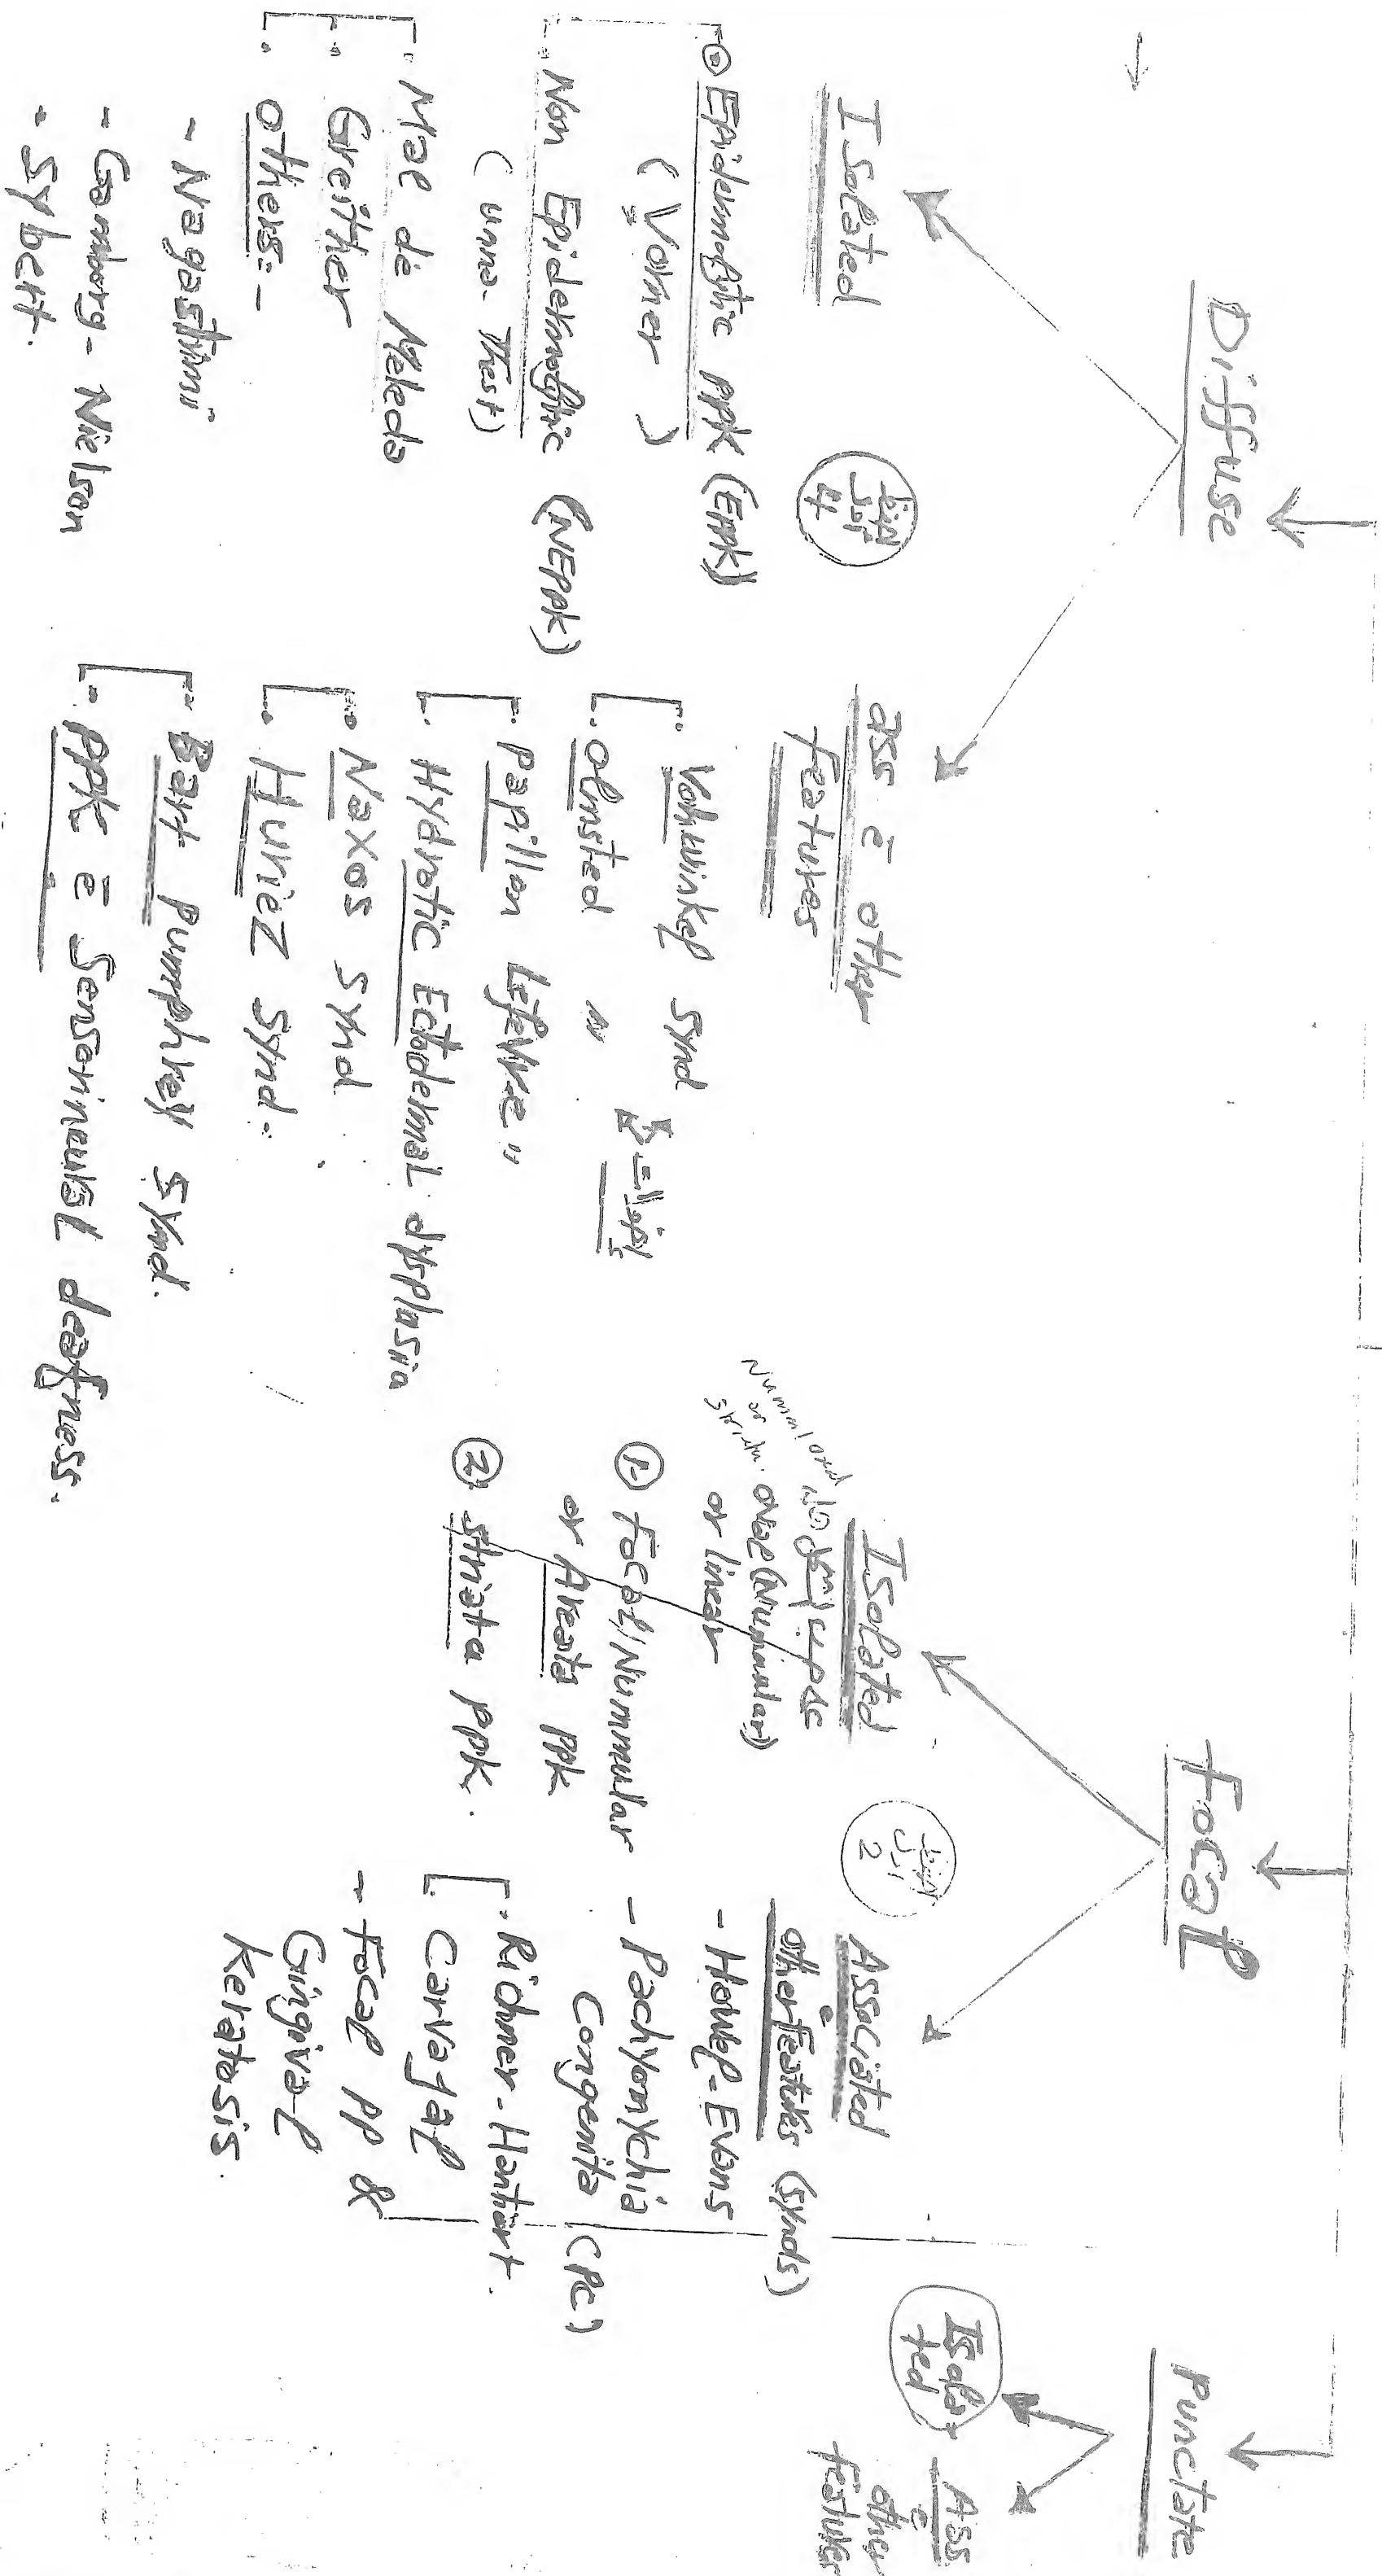 Diffuse
Isolated
Epidermolytic PPK (EPPK)
(Vorner)
Non Epidermolytic (NEPPK)
(unna-Thost)
Mal de Meleda
Greither
others:-
- Nagashima
- Gamborg-Nielson
- Sybert.
4
ass ē other
features
Vohwinkel Synd
olmsted "
Papillon Lefevre "
Hydrotic Ectodermal dysplasia
Naxos Synd.
Huriez Synd.
Bart Pumphrey Synd.
PPK ē Sensorineural deafness.
Focal
Isolated
oval (Nummular)
or linear
① Focal/Nummular
or Areata PPK
② Striata PPK.
2
Associated
ē
other features (synds)
- Howel-Evans
- Pachyonychia
Congenita (PC)
Richner-Hanhart.
Carvajal
- Focal PP &
Gingival
Keratosis.
Punctate
Isola-
ted
Ass
ē
other
features